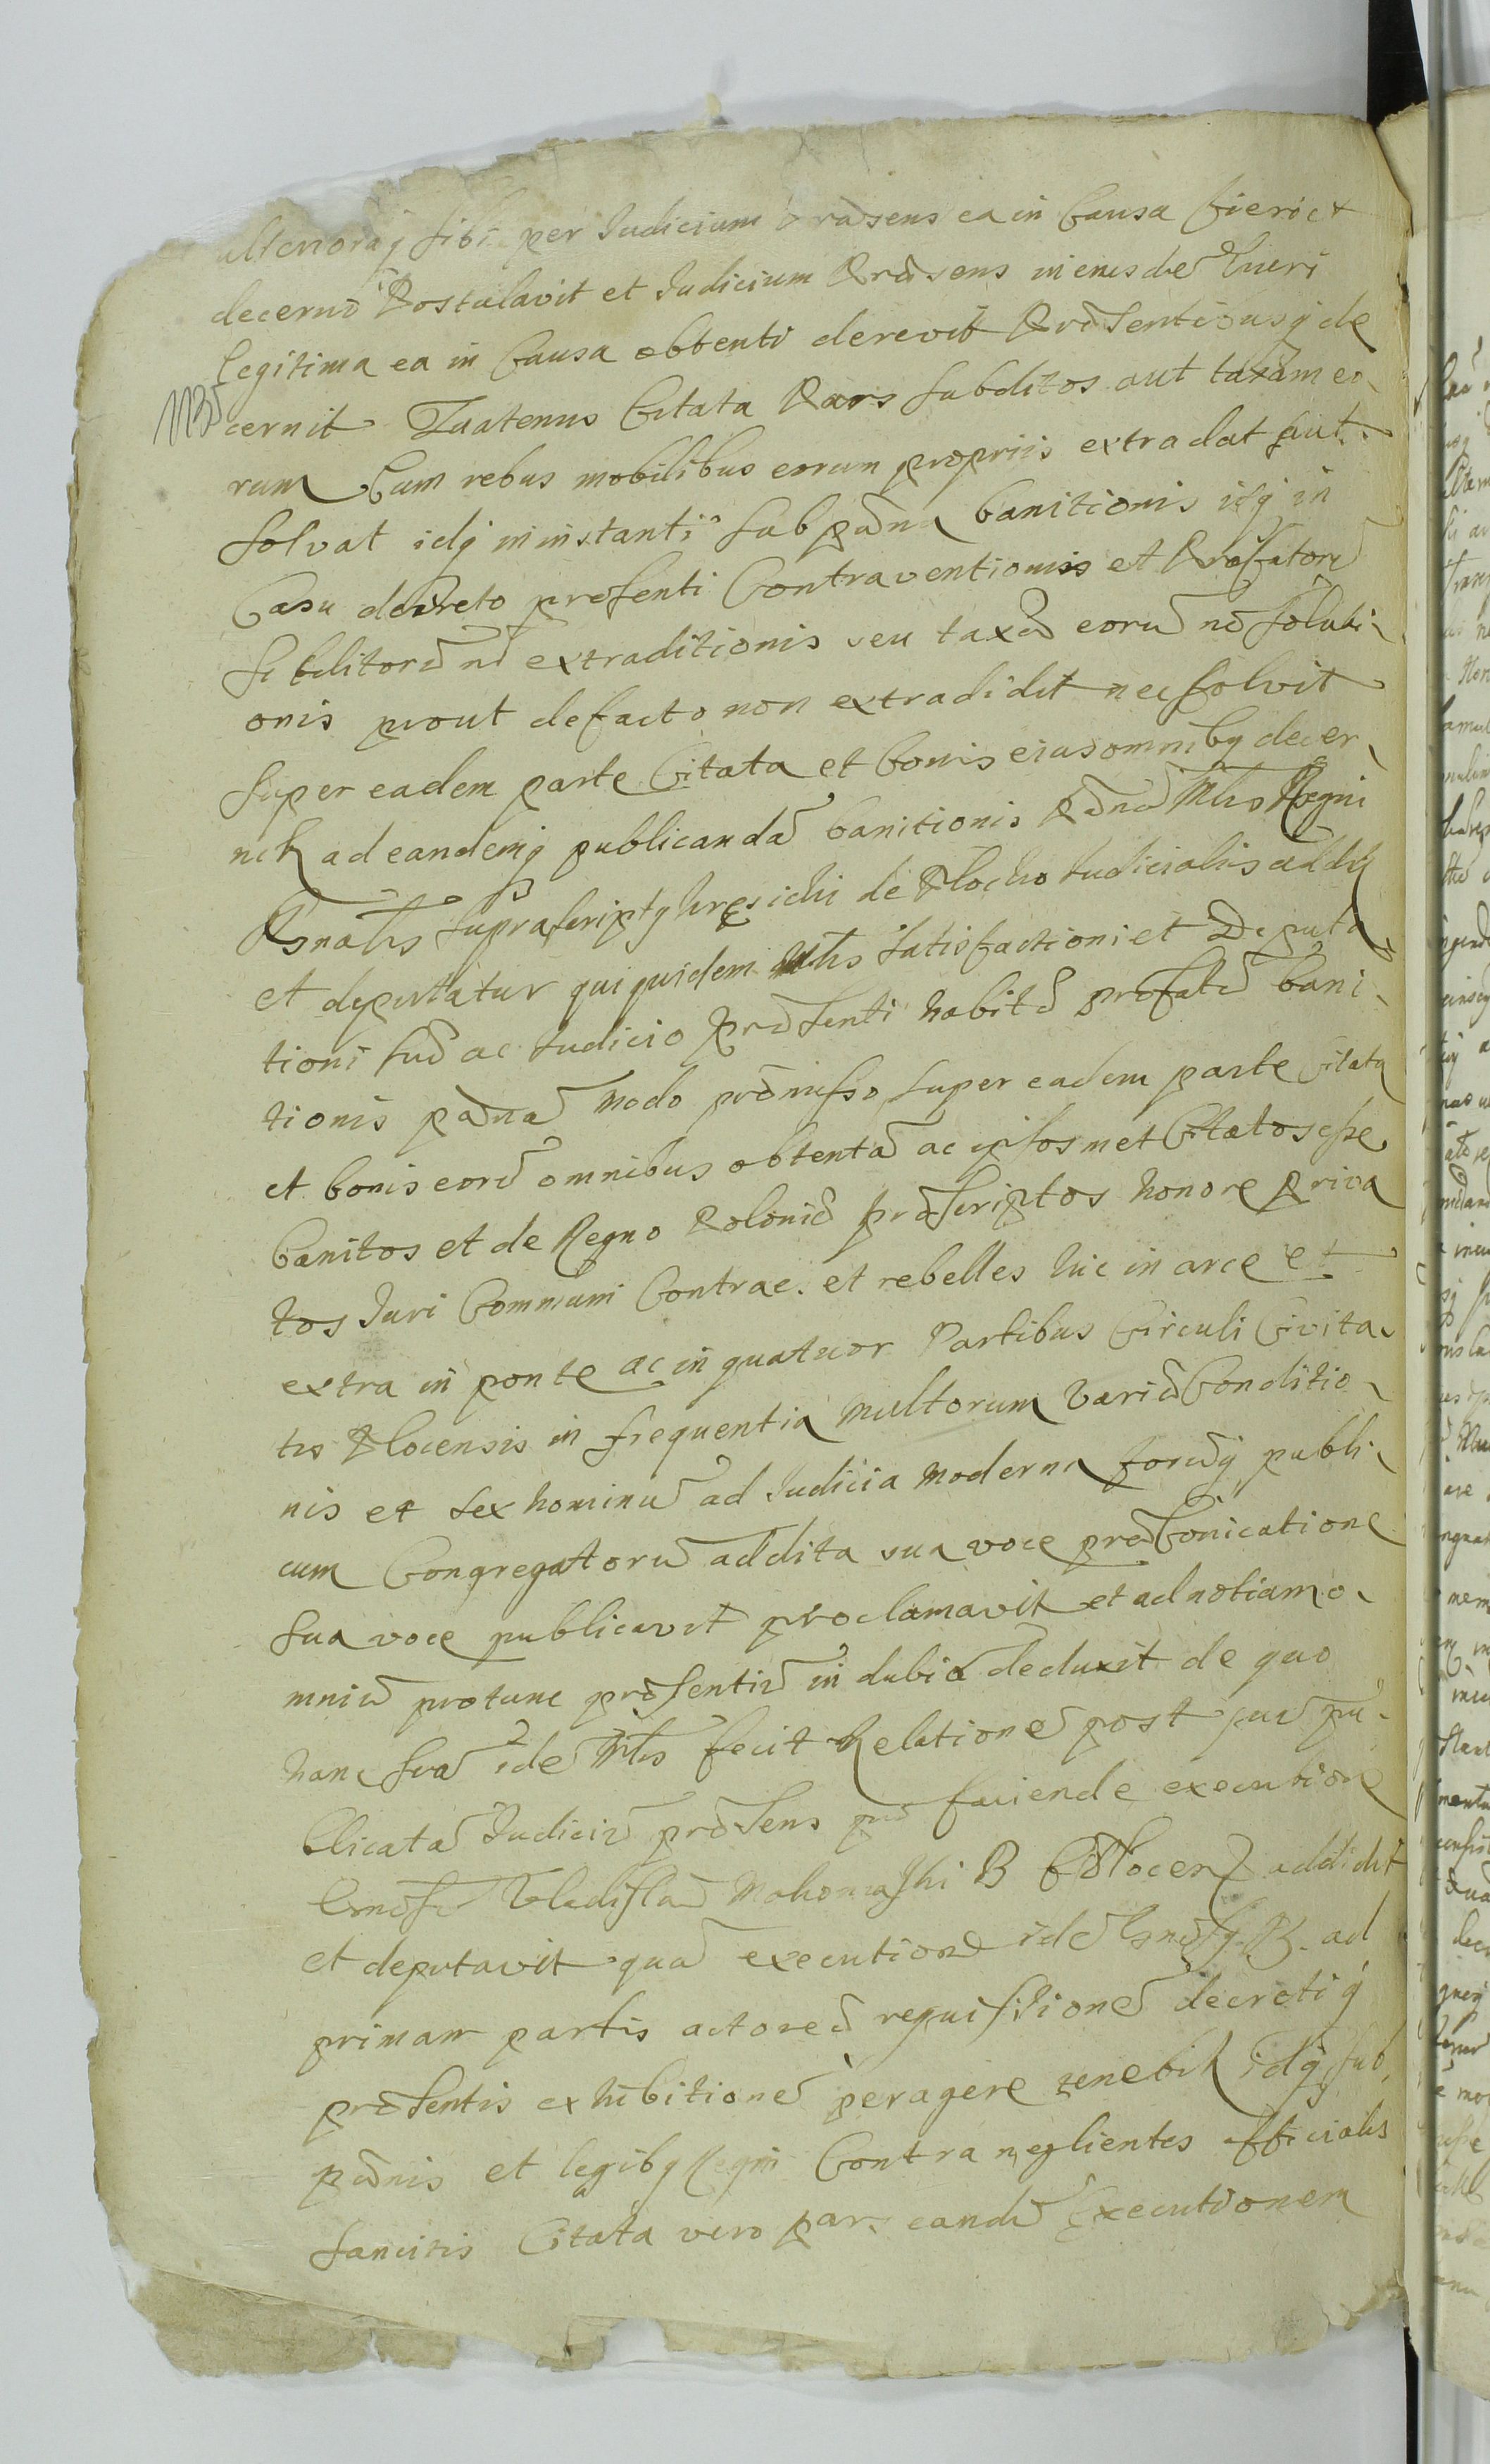 ulterioraq sibi per Judicium Præsens ea in Causa fieri et
decerni Postulavit et Judicium Præsens in eius dē
legitima ea in Causa obtenti derevit Præsentibusq de
cernit Quatenus Citata Pars subditos aut taxam eo
rum Cum rebus mobilibus eorum propriis extradat aut
solvat idq in instanti sub pæna banitionis isq in
Casu decreto presenti Contraventionis et Præfatorū
subditorū nō extraditionis seu taxæ eorū nō soluti
onis prout de facto non extradidit nec solvit
super eadem parte Citata et bonis eius omnibq decer
nit ad eandemq publicandā banitionis Pænā Mlis Regni
Gnalis suprascriptq de Plocko Judicialis addit
et deputatur qui quidem Mlis satisfactioni et Deputa
tioni suæ ac Judicio Præsenti habitæ præfatæ bani
tionis pænā modo præmisso super eadem parte Citata
et bonis eorū omnibus obtentā ac ipsosmet Citatos esse
banitos et de Regno Poloniæ proscriptos honore priva
tos Juri Communi Contrae. et rebelles hic in arce et
extra in ponte ac in quatuor Partibus Circuli Civita
tis Plocensis in frequentia multorum variæ Conditio
nis et sex hominū ad Judicia moderna forūq publi
cum Congregatorū addita sua voce præconicatione
sua voce publicavit proclamavit et ad notiam o
mniū protunc præsentiū in dubiā deduxit de quo
hanc suā idē Mlis fecit Relationē post quā pu
blicatā Judiciū præsens pro faciende executione
Gnōsū Vladislaū B C Plocen addidit
et deputavit quā executionē idē Gnōsq B. ad
primam partis actoreæ requisitionē decretiq
præsentis exhibitionē peragere tenebit idq sub
pænis et legibq Regni Contra neglientes officiales
sancitis Citata vero pars eandē Executionem